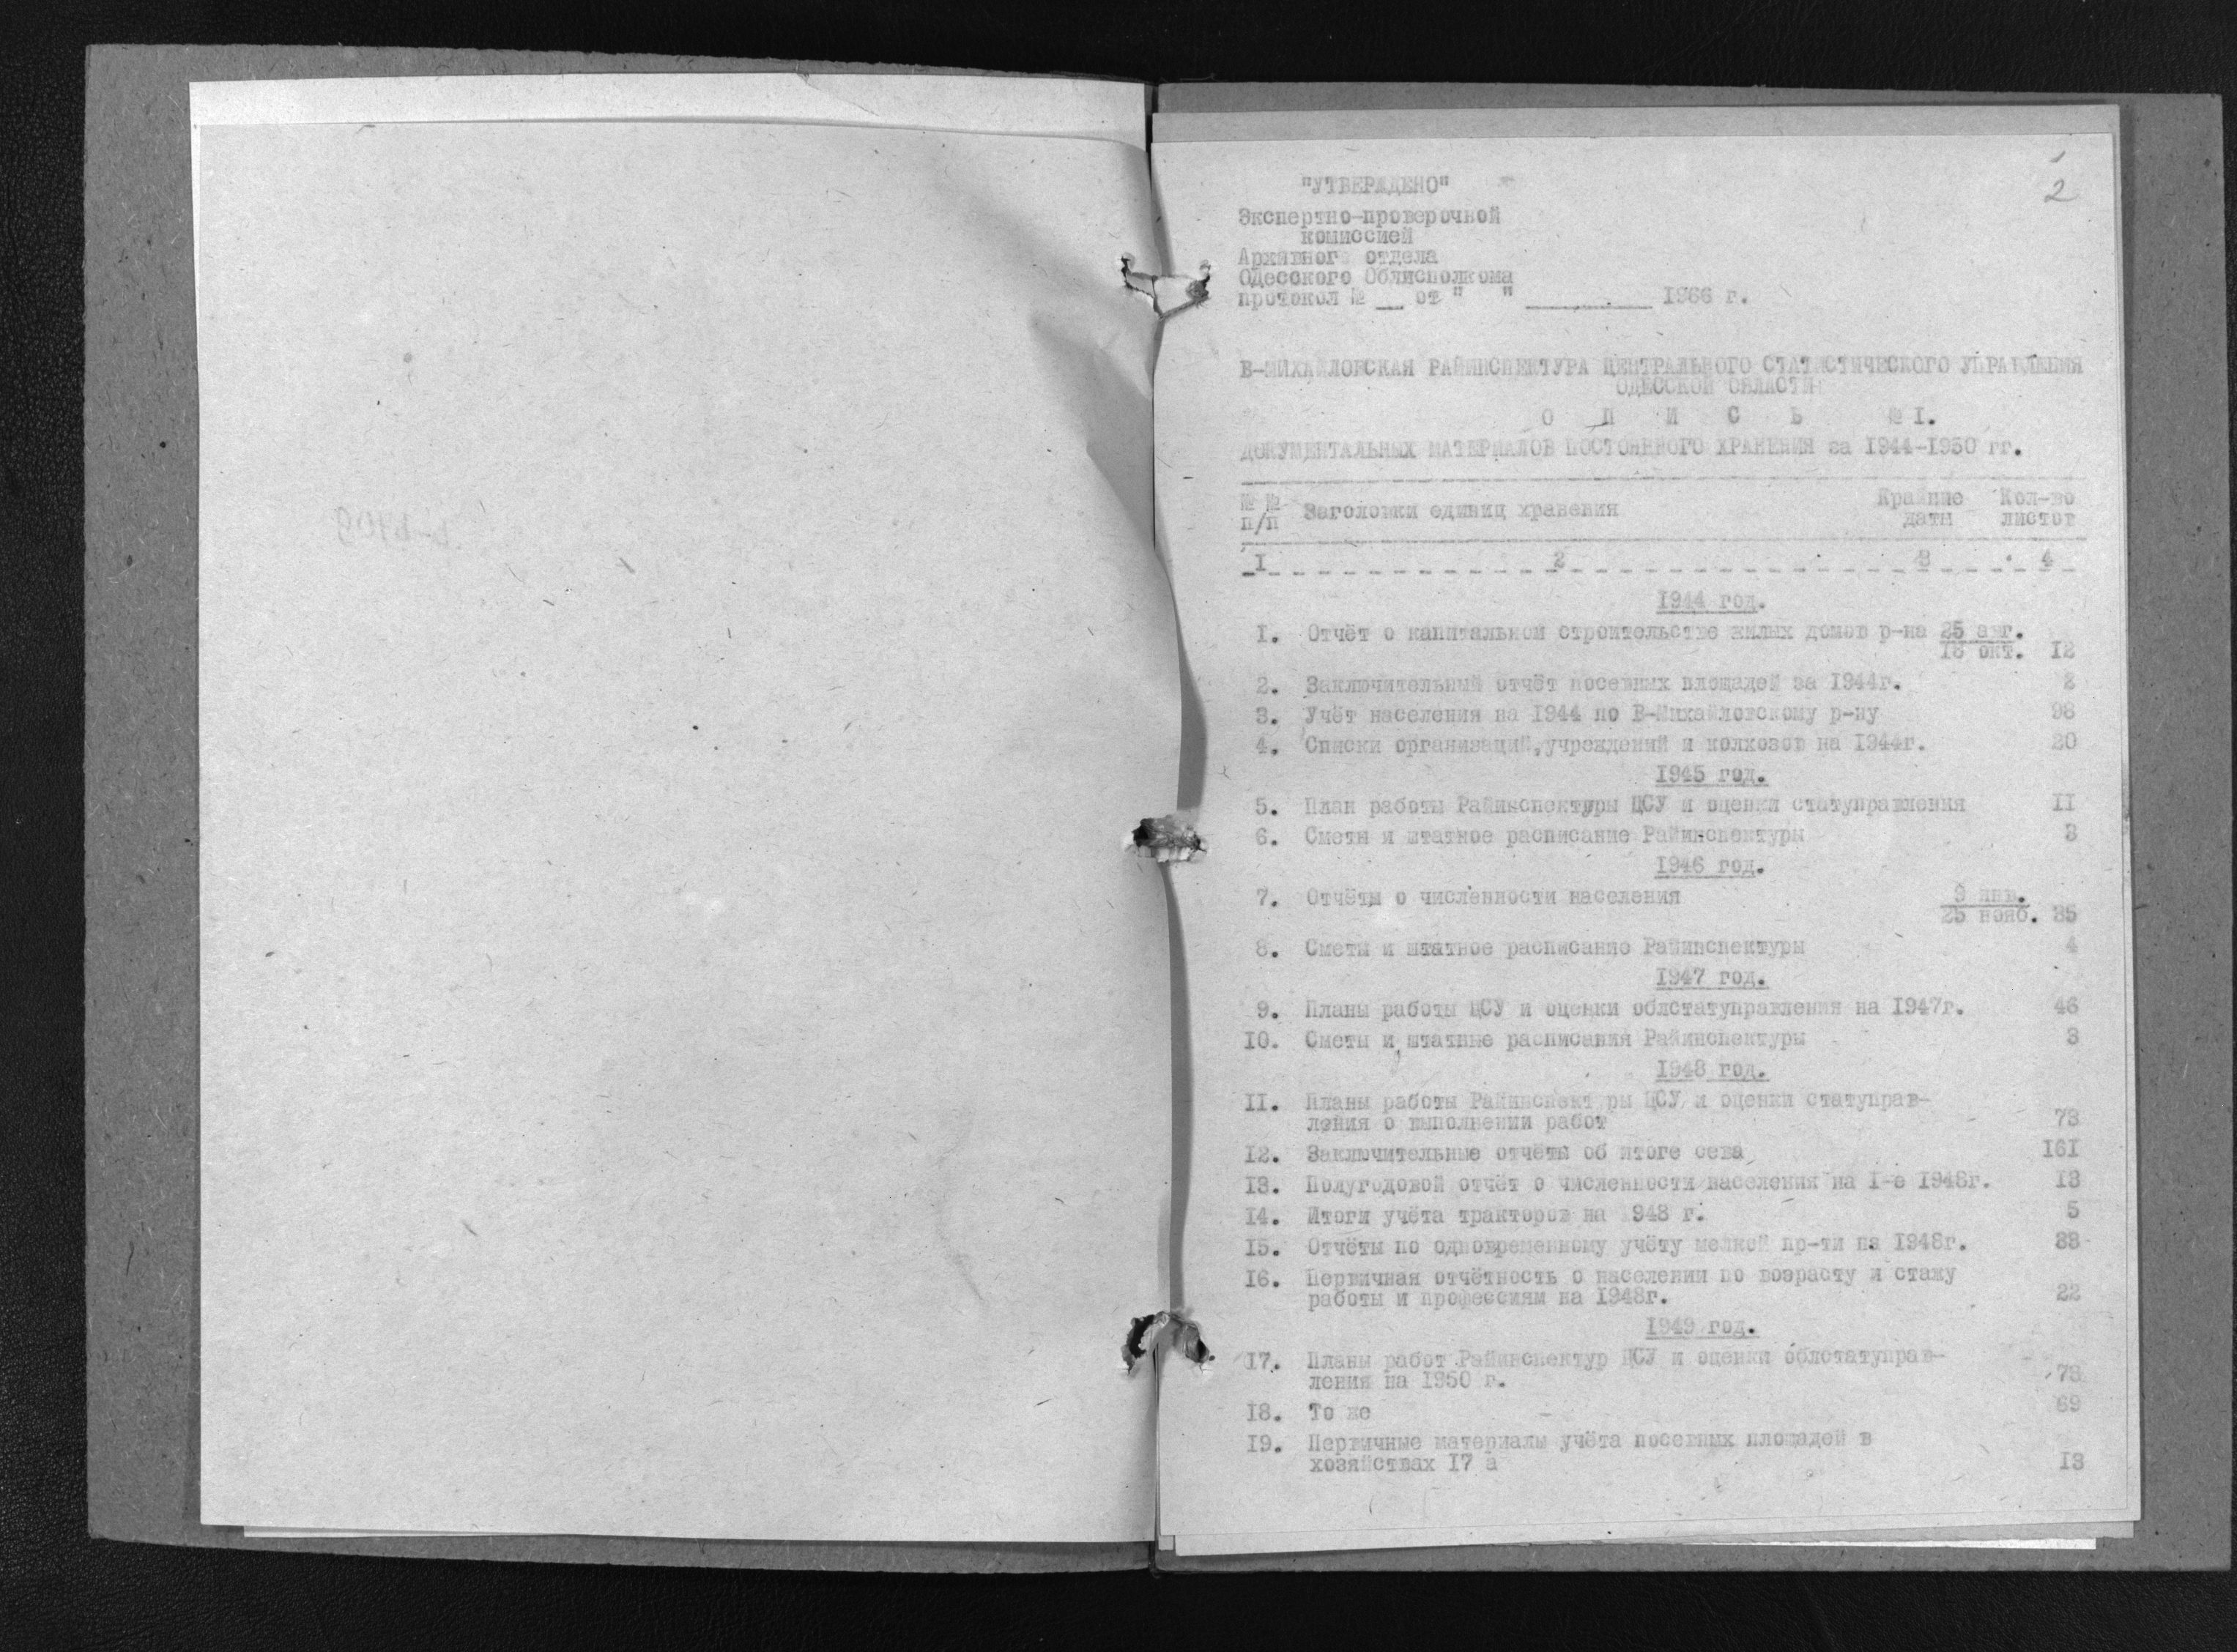 2
"УТВЕРЖДЕНО"
Экспертно-проверочной
комиссией
Архивног отдела
Одесского Облисполкома
протокол № __ от " " ________ 1966 г.
В-МИХАЙЛОВСКАЯ РАЙИНСПЕКТУРА ЦЕНТРАЛЬНОГО СТАТИСТИЧЕСКОГО УПРАВЛЕНИЯ
ОДЕССКОЙ ОБЛАСТИ
О П И С Ь № I.
ДОКУМЕНТАЛЬНЫХ МАТЕРИАЛОВ ПОСТОЯННОГО ХРАНЕНИЯ за 1944-1950 гг.
№ № Заголовки единиц хранения Крайние Кол-во
п/п даты листов
I 2 3 4
1944 год.
I. Отчёт о капитальном строительстве жилых домов р-на 25 авг.
18 окт. 12
2. Заключительный отчёт посевных площадей за 1944г. 2
3. Учёт населения на 1944 по В-Михайловскому р-ну 98
4. Списки организаций, учреждений и колхозов на 1944г. 20
1945 год.
5. План работы Райинспектуры ЦСУ и оценки статуправления II
6. Сметы и штатное расписание Райинспектуры 3
1946 год.
7. Отчёты о численности населения 9 янв.
25 нояб. 35
8. Сметы и штатное расписание Райинспектуры 4
1947 год.
9. Планы работы ЦСУ и оценки облстатуправления на 1947г. 46
10. Сметы и штатные расписания Райинспектуры 3
1948 год.
II. Планы работы Райинспект ры ЦСУ и оценки статуправ-
ления о выполнении работ 73
12. Заключительные отчёты об итоге сева 161
13. Полугодовой отчёт о численности населения на I-е 1948г. 13
14. Итоги учёта тракторов на 948 г. 5
15. Отчёты по одновременному учёту мелкой пр-ти на 1948г. 33
16. Первичная отчётность о населении по возрасту и стажу
работы и профессиям на 1948г. 22
1949 год.
17. Планы работ Райинспектур ЦСУ и оценки облстатуправ-
ления на 1950 г. 73
18. То же 69
19. Первичные материалы учёта посевных площадей в
хозяйствах 17 а 13